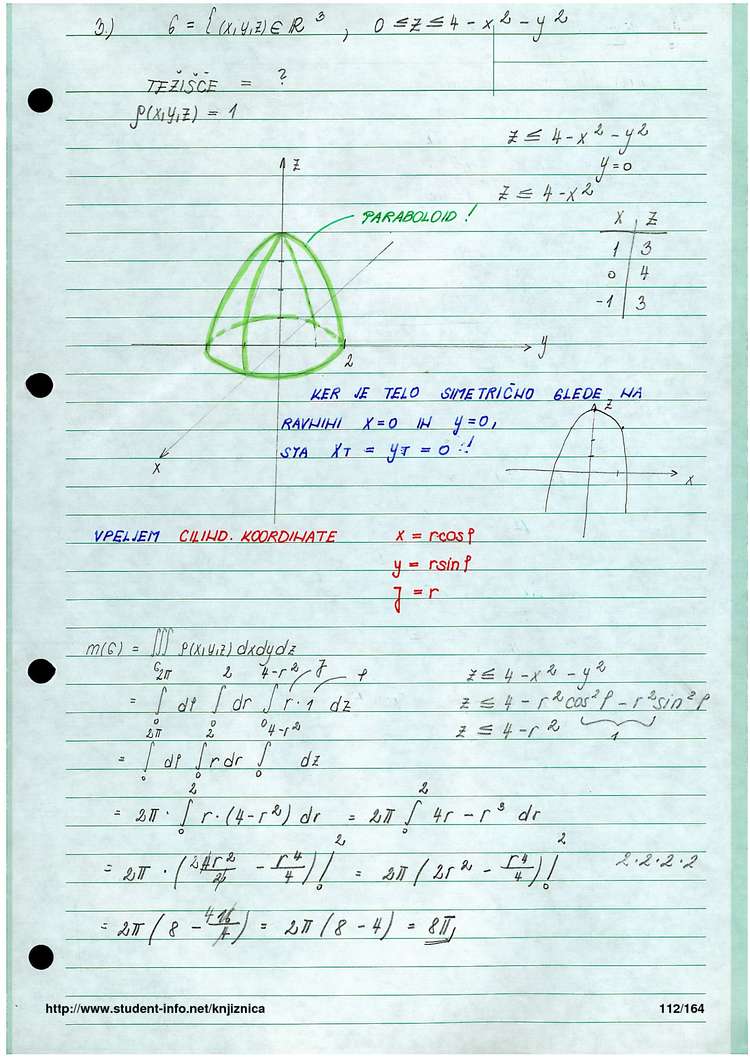 3.) G = {(x,y,z) ∈ ℝ³, 0 ≤ z ≤ 4 - x² - y²
TEŽIŠČE = ?
ρ(x,y,z) = 1
z ≤ 4 - x² - y²
y = 0
z ≤ 4 - x²
x | z
1 | 3
0 | 4
-1 | 3
z
PARABOLOID !
y
2
x
KER JE TELO SIMETRIČNO GLEDE NA
RAVNINI X=0 IN Y=0,
STA X_T = Y_T = 0 !!
z
x
VPELJEM CILIND. KOORDINATE
x = r cosφ
y = r sinφ
J = r
m(G) = ∭_G ρ(x,y,z) dxdydz
= ∫₀^{2π} dφ ∫₀^{2} dr ∫₀^{4-r²} r · 1 dz
J
ρ
z ≤ 4 - x² - y²
z ≤ 4 - r² cos²φ - r² sin²φ
1
z ≤ 4 - r²
= ∫₀^{2π} dφ ∫₀^{2} r dr ∫₀^{4-r²} dz
= 2π · ∫₀² r · (4-r²) dr = 2π ∫₀² 4r - r³ dr
= 2π · (2 4r²/2 - r⁴/4) |₀² = 2π (2r² - r⁴/4) |₀²
2·2·2·2
= 2π (8 - 4 16/4) = 2π (8 - 4) = 8π
http://www.student-info.net/knjiznica
112/164